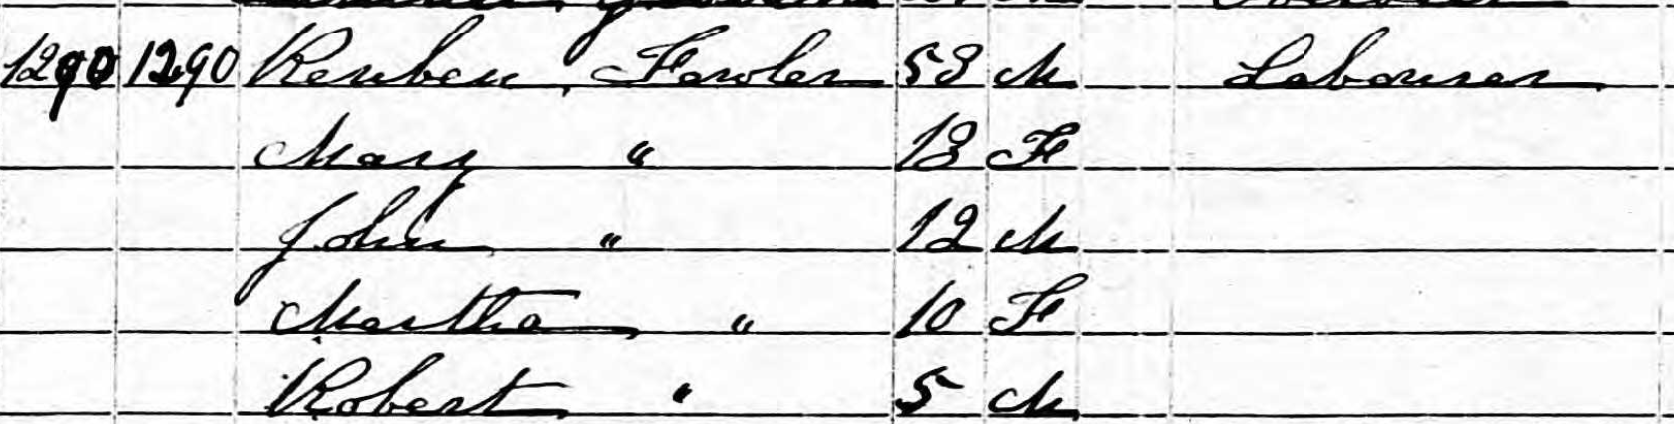 1290 1290 Reuben Fowler 53 M Labourer
Mary " 13 F
John " 12 M
Martha " 10 F
Robert " 5 M